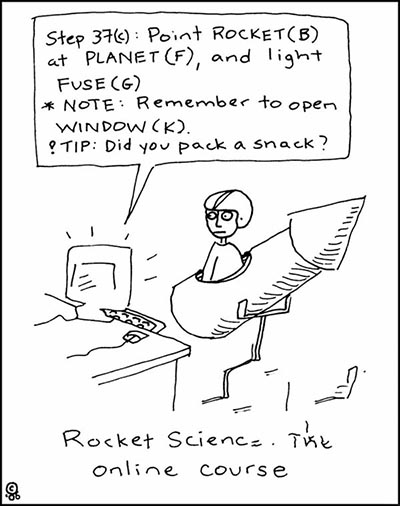 Step 37(c): Point ROCKET(B)
at PLANET(F), and light
FUSE(G)
* NOTE: Remember to open
WINDOW(K).
! TIP: Did you pack a snack?
Rocket Science. The
online course